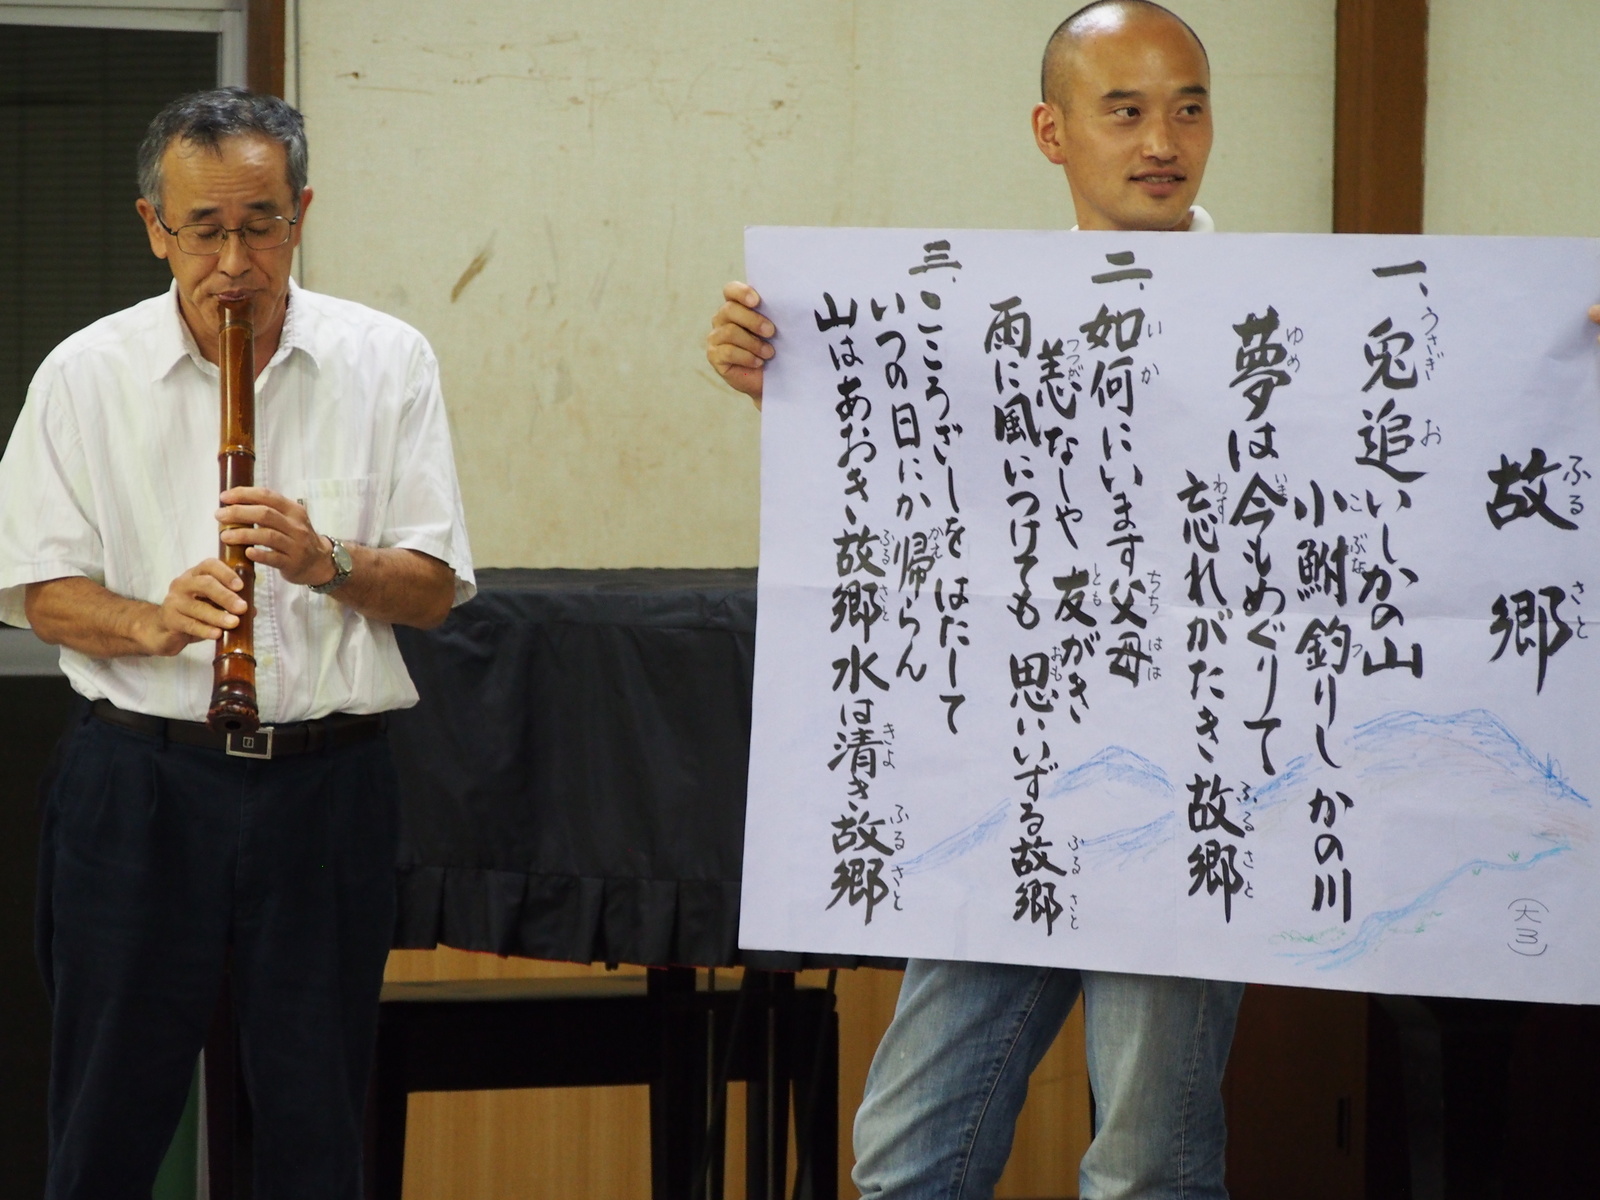 故郷
ふるさと
一、兎追いしかの山
うさぎお
小鮒釣りしかの川
こぶなつ
夢は今もめぐりて
ゆめいま
忘れがたき故郷
わすふるさと
二、如何にいます父母
いかちちはは
恙なしや友がき
つつがとも
雨に風につけても思いいずる故郷
おもふるさと
三、こころざしをはたして
いつの日にか帰らん
かえ
山はあおき故郷水は清き故郷
ふるさときよふるさと
(大3)